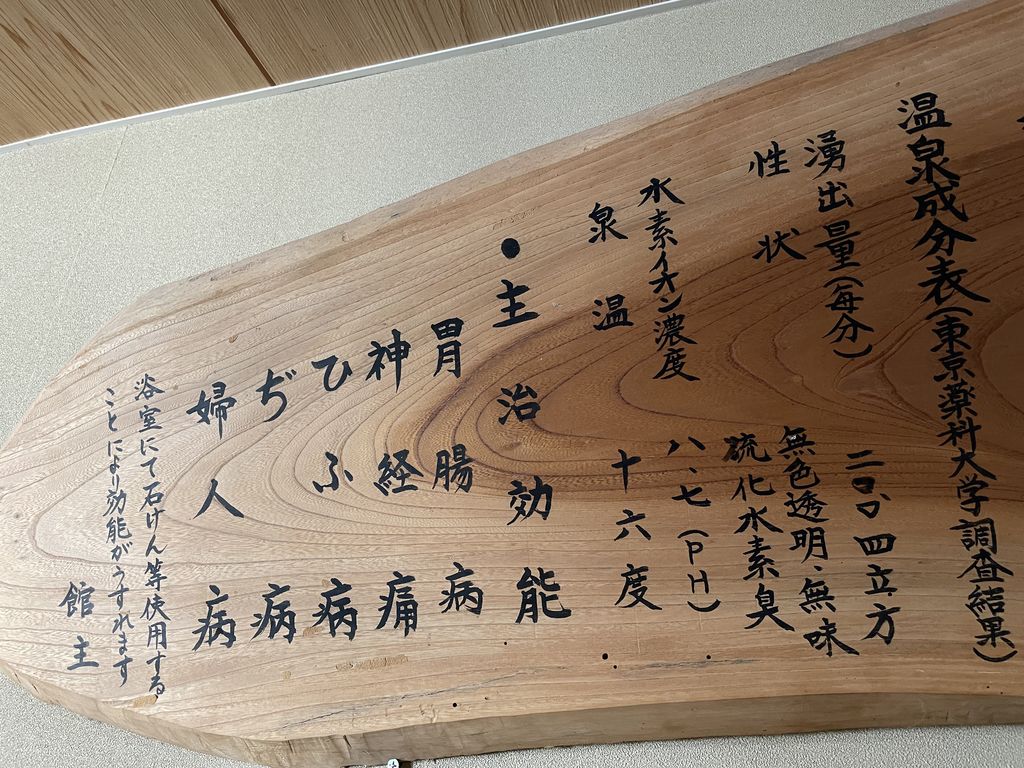 温泉成分表(東京薬科大学調査結果)
湧出量(毎分) 二〇〇、四立方
性状 無色透明、無味
硫化水素臭
水素イオン濃度 八、七(PH)
泉温 十六度
●主治効能
胃腸病
神経痛
ひふ病
ぢ病
婦人病
浴室にて石けん等使用する
ことにより効能がうすれます
館主